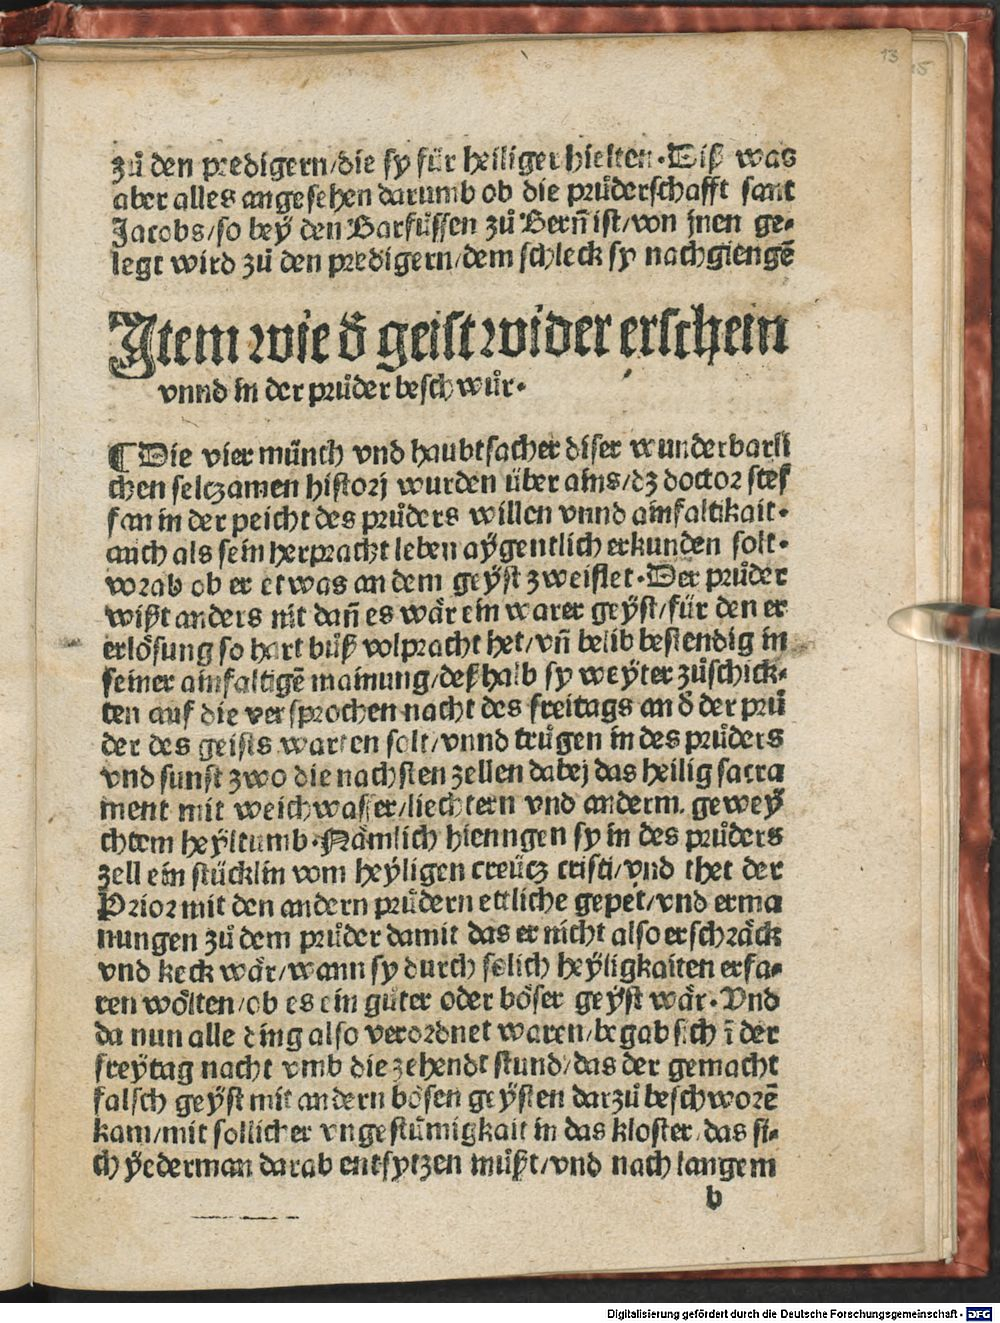 13
15
zů den predigern/die sy für heiliger hielten. Diß was
aber alles angesehen darumb ob die průderschafft sant
Jacobs/so beÿ den Barfůssen zů Bern̄ ist/von jnen ge-
legt wird zů den predigern/dem schleck sy nachgiengē
Item wie d̄ geist wider erschein
vnnd in der průder beschwůr.
¶ Die vier münch vnd haubtsacher diser wunderbarli
chen selczamen historj wurden über ains/dz doctor stef
fan in der peicht des průders willen vnnd ainfaltikait.
auch als sein herpracht leben aÿgentlich erkunden solt.
worab ob er etwas an dem geÿst zweiflet. Der průder
wißt anders nit dan̄ es wår ein warer geÿst/für den er
erlösung so hart bůß volpracht het/vn̄ belib bestendig in
seiner ainfaltigē mainung/deßhalb sy weÿter zůschick-
ten auf die versprochen nacht des freitags an d̄ der prů
der des geists warten solt/vnnd trůgen in des průders
vnd sunst zwo die nachsten zellen dabej das heilig sacra
ment mit weichwasser/liechtern vnd anderm. geweÿ
chtem heÿltumb. Nåmlich hienngen sy in des průders
zell ein stücklin vom heÿligen creücz cristi/vnd thet der
Prior mit den andern průdern ettliche gepet/vnd erma
nungen zů dem průder damit das er nicht also erschråck
vnd keck wår/wann sy durch solich heÿligkaiten erfa-
ren wölten/ob es ein gůter oder böser geÿst wår. Vnd
da nun alle ding also verordnet waren/begab sich ī der
freÿtag nacht vmb die zehendt stund/das der gemacht
falsch geÿst mit andern bösen geÿsten darzů beschworē
kam/mit sollicher vngestůmigkait in das kloster/das si-
ch ÿederman darab entsytzen můßt/vnd nach langem
b
Digitalisierung gefördert durch die Deutsche Forschungsgemeinschaft - DFG